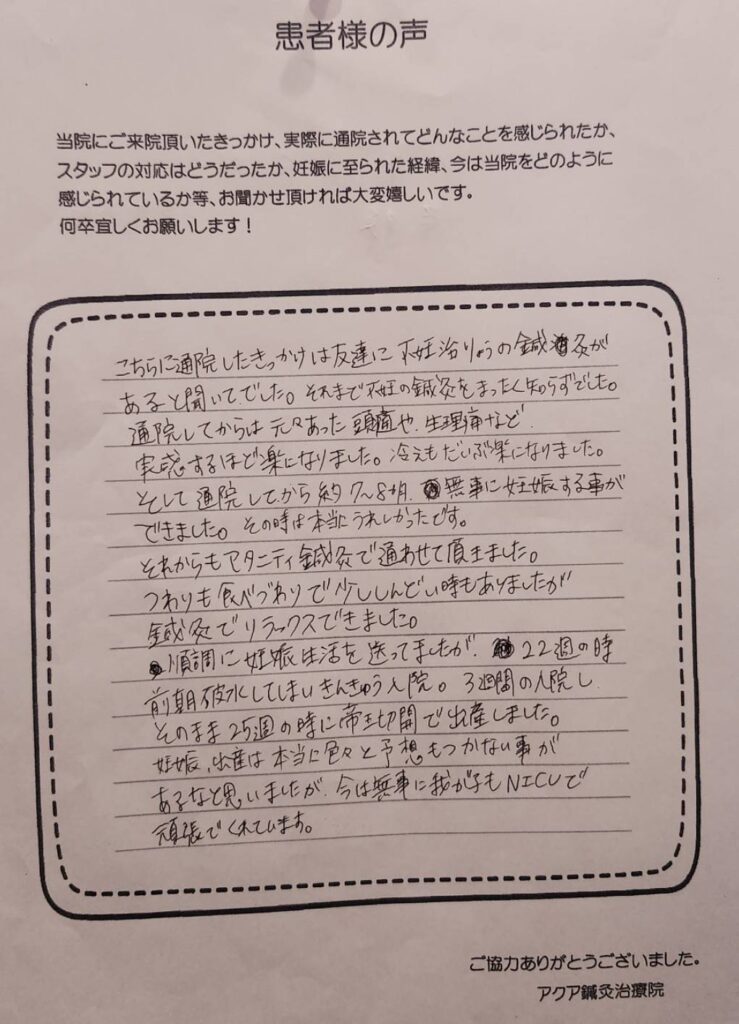 患者様の声
当院にご来院頂いたきっかけ、実際に通院されてどんなことを感じられたか、
スタッフの対応はどうだったか、妊娠に至られた経緯、今は当院をどのように
感じられているか等、お聞かせ頂ければ大変嬉しいです。
何卒宜しくお願いします！
こちらに通院したきっかけは友達に不妊治りょうの鍼灸が
あると聞いてでした。それまで不妊の鍼灸をまったく知らずでした。
通院してからは元々あった頭痛や、生理痛など
実感するほど楽になりました。冷えもだいぶ楽になりました。
そして通院してから約7〜8か月、無事に妊娠する事が
できました。その時は本当にうれしかったです。
それからもマタニティ鍼灸で通わせて頂きました。
つわりも食べづわりで少ししんどい時もありましたが
鍼灸でリラックスできました。
順調に妊娠生活を送ってましたが、22週の時
前期破水してしまいきんきゅう入院。3週間の入院し
そのまま25週の時に帝王切開で出産しました。
妊娠、出産は本当に色々と予想もつかない事が
あるなと思いましたが、今は無事に我が子もNICUで
頑張てくれています。
ご協力ありがとうございました。
アクア鍼灸治療院